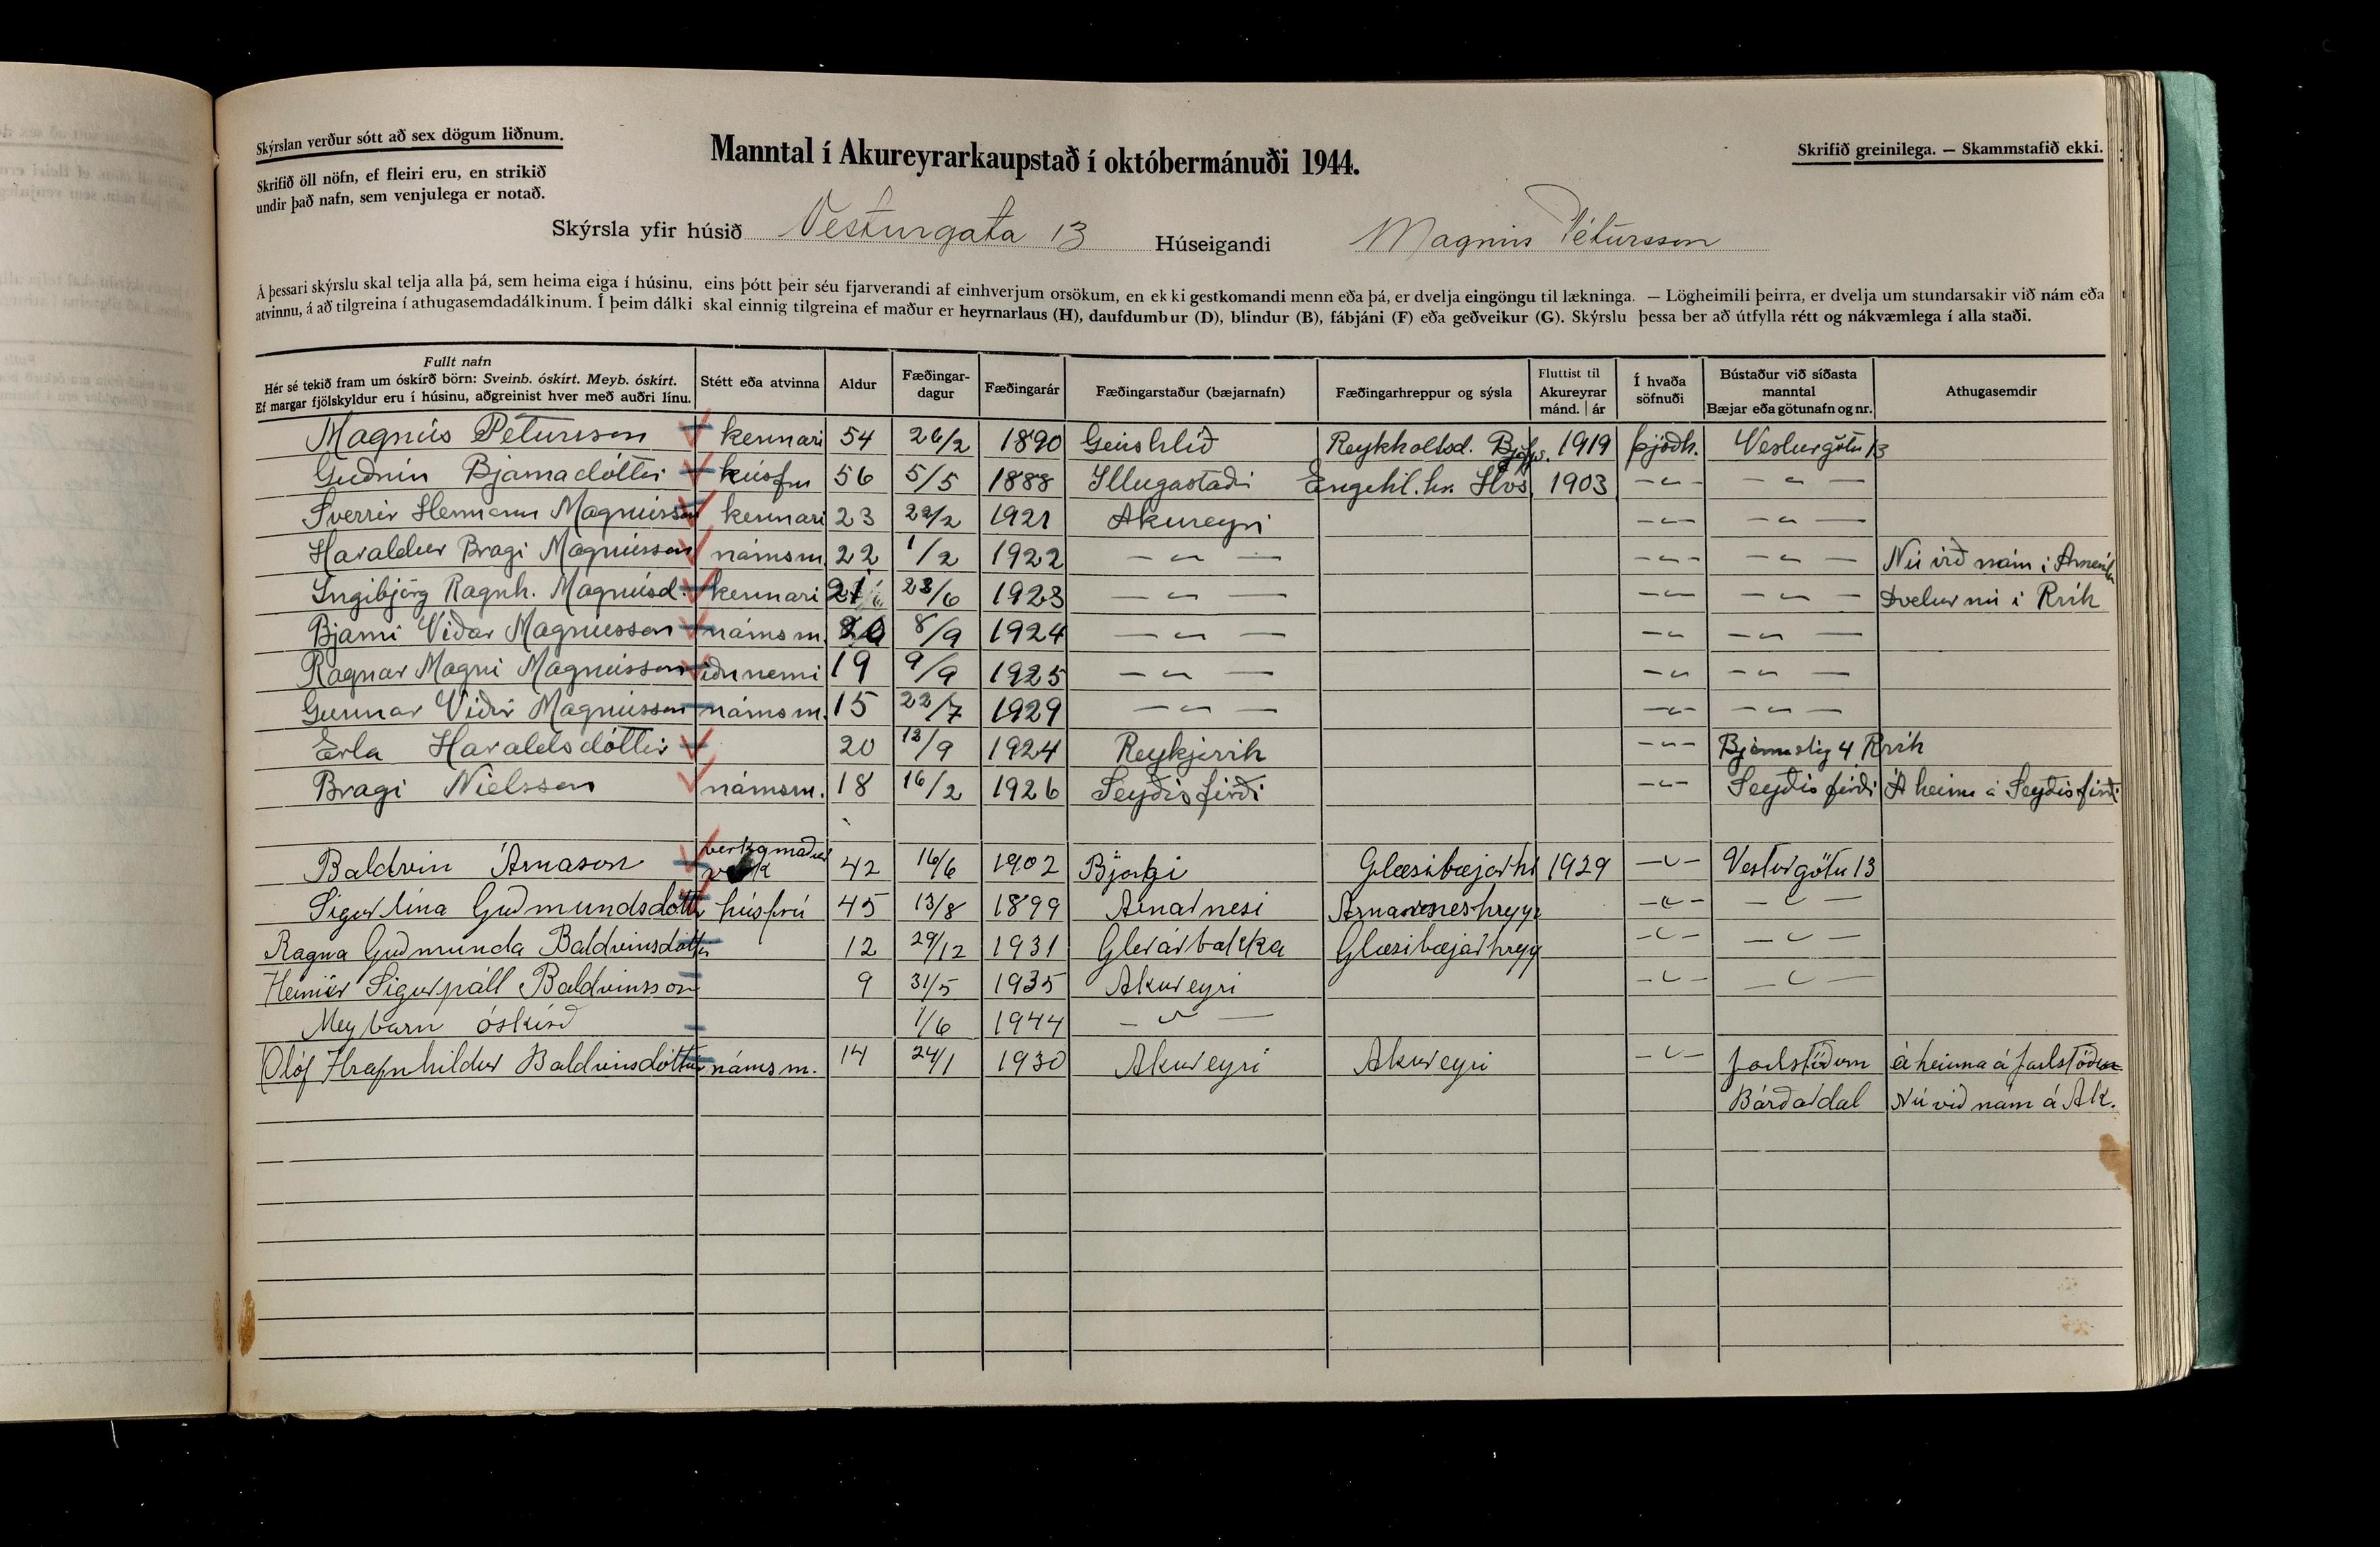 Skýrslan verður sótt að sex dögum liðnum.
Skrifið öll nöfn, ef fleiri eru, en strikið
undir það nafn, sem venjulega er notað.
Manntal í Akureyrarkaupstað í októbermánuði 1944.
Skrifið greinilega. — Skammstafið ekki.
Skýrsla yfir húsið Vesturgata 13 Húseigandi Magnús Pétursson
Á þessari skýrslu skal telja alla þá, sem heima eiga í húsinu, eins þótt þeir séu fjarverandi af einhverjum orsökum, en ekki gestkomandi menn eða þá, er dvelja eingöngu til lækninga. — Lögheimili þeirra, er dvelja um stundarsakir við nám eða
atvinnu, á að tilgreina í athugasemdadálkinum. Í þeim dálki skal einnig tilgreina ef maður er heyrnarlaus (H), daufdumbur (D), blindur (B), fábjáni (F) eða geðveikur (G). Skýrslu þessa ber að útfylla rétt og nákvæmlega í alla staði.
Fullt nafn
Hér sé tekið fram um óskírð börn: Sveinb. óskírt. Meyb. óskírt.
Ef margar fjölskyldur eru í húsinu, aðgreinist hver með auðri línu.
Stétt eða atvinna
Aldur
Fæðingar-
dagur
Fæðingarár
Fæðingarstaður (bæjarnafn)
Fæðingarhreppur og sýsla
Fluttist til
Akureyrar
mánd. | ár
Í hvaða
söfnuði
Bústaður við síðasta
manntal
Bæjar eða götunafn og nr.
Athugasemdir
Magnús Pétursson kennari 54 26/2 1890 Geirshlíð Reykholtsd. Bgfjs. 1919 Þjóðk. Vesturgötu 13
Guðrún Bjarnadóttir húsfrú 56 5/5 1888 Illugastaði Engihl.hr. Hvs. 1903 — " — — " —
Sverrir Hermann Magnússon kennari 23 22/2 1921 Akureyri — " — — " —
Haraldur Bragi Magnússon námsm. 22 1/2 1922 — " — — " — — " — Nú við nám í Ameríku
Ingibjörg Ragnh. Magnúsd. kennari 21 23/6 1923 — " — — " — — " — Dvelur nú í Rvík
Bjarni Viðar Magnússon námsm. 20 8/9 1924 — " — — " — — " —
Ragnar Magni Magnússon iðnnemi 19 9/9 1925 — " — — " — — " —
Gunnar Viðir Magnússon námsm. 15 22/7 1929 — " — — " — — " —
Erla Haraldsdóttir 20 12/9 1924 Reykjavík — " — Bjarnastíg 4 Rvík
Bragi Níelsson námsm. 18 16/2 1926 Seyðisfirði — " — Seyðisfirði Á heima á Seyðisfirði
Baldvin Árnason verkamaður 42 16/6 1902 Björgi Glæsibæjarhr 1929 — " — Vesturgötu 13
Sigurlína Guðmundsdóttir húsfrú 45 13/8 1899 Arnarnesi Arnarneshrepp — " — — " —
Ragna Guðmunda Baldvinsdóttir 12 29/12 1931 Glerárbakka Glæsibæjarhrepp — " — — " —
Heimir Sigurpáll Baldvinsson 9 31/5 1935 Akureyri — " — — " —
Meybarn óskírð 1/6 1944 — " —
Ólöf Hrafnhildur Baldvinsdóttir námsm. 14 24/1 1930 Akureyri Akureyri — " — Jarlstöðum á heima á Jarlstöðum
Bárðardal Nú við nám á Ak.